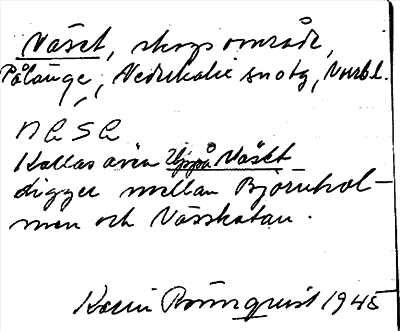 Väset, skogsområde,
Pålänge, Nederkalix sng, Nbtn l.
n e s e
Kallas även Uppå Väset
ligger mellan Björnhol-
men och Vässkatan.
Karin Rönnquist 1945